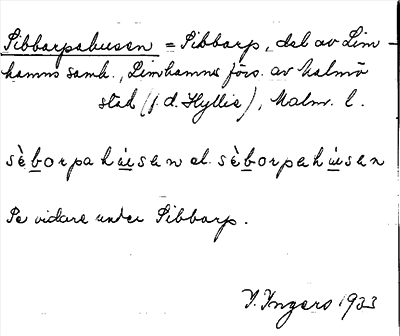 Sibbarpahusen = Sibbarp, del av Lim-
hamns samh., Limhamns förs. av Malmö
stad (f.d. Hyllie), Malm. l.
sèborpahúsen el. sèborpehúsen
Se vidare under Sibbarp.
I. Ingers 1933